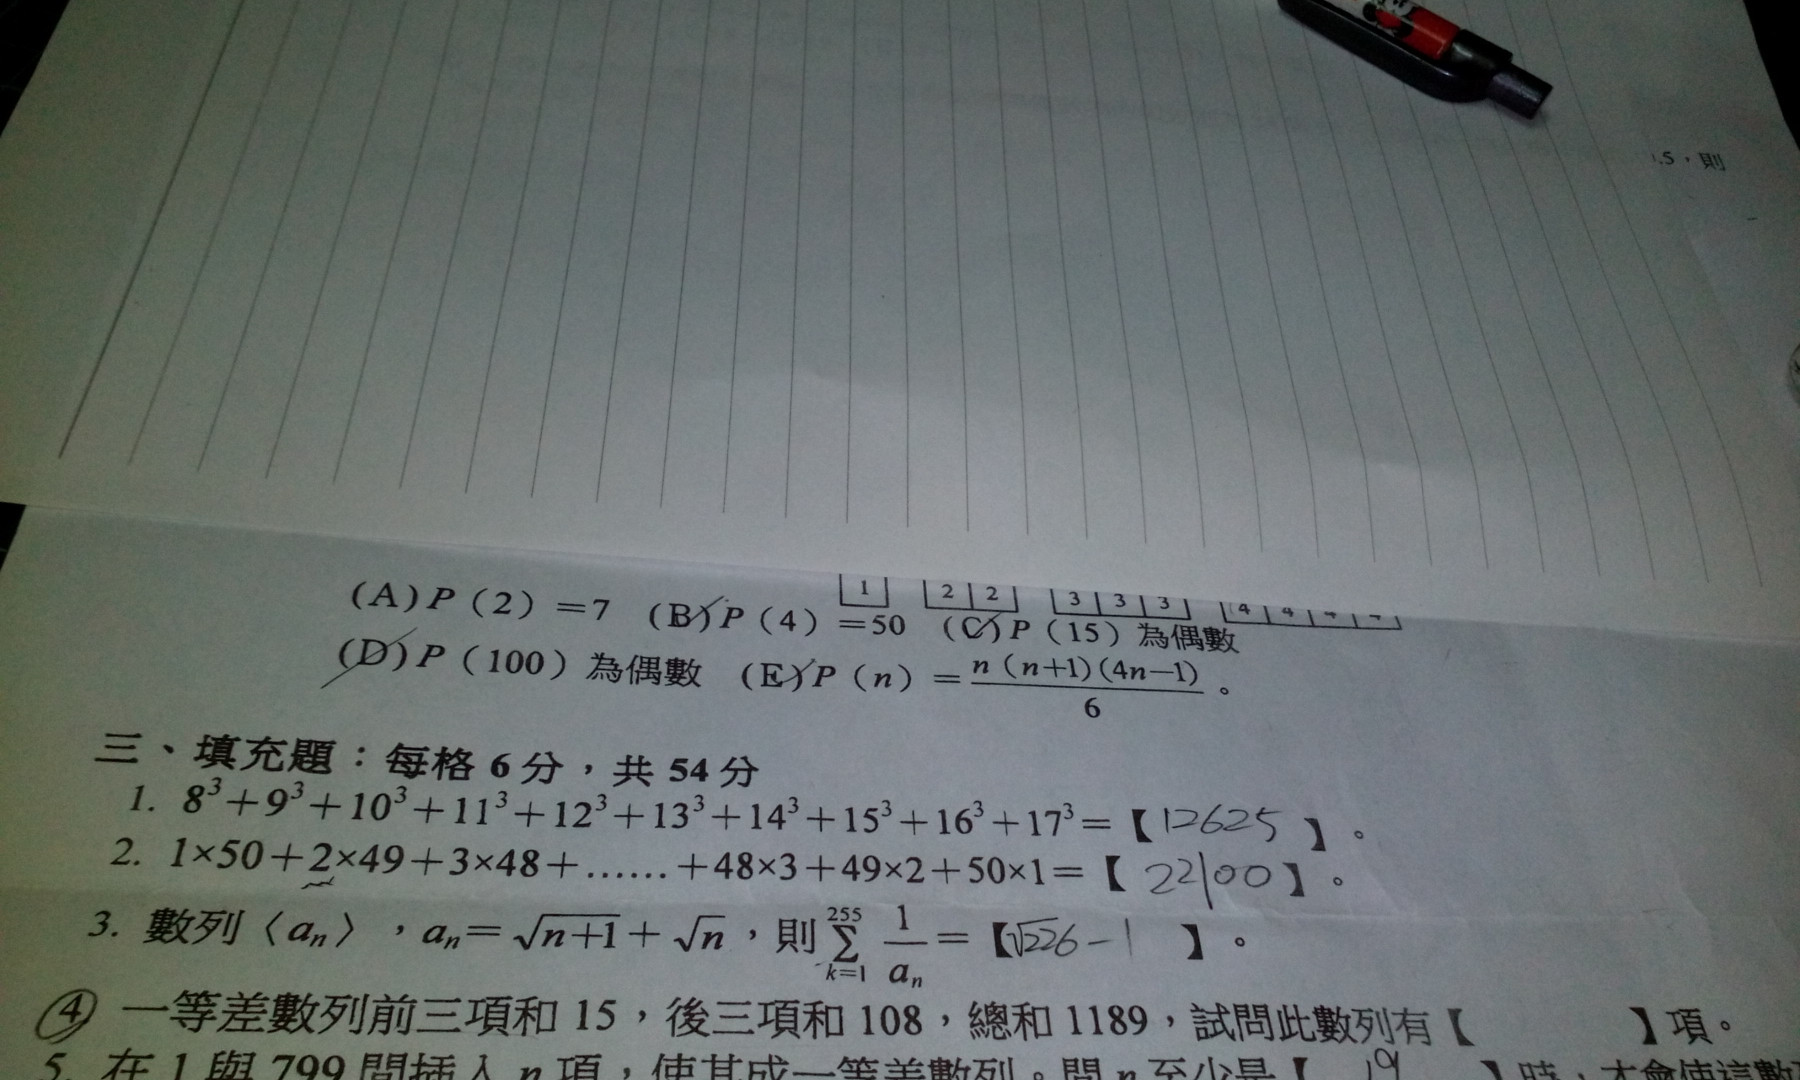 1.5，則
1 2 2 3 3 3 4 4 4 4
(A)P（2）=7 (B)P（4）=50 (C)P（15）為偶數
(D)P（100）為偶數 (E)P（n）=n（n+1)(4n−1)/6。
三、填充題：每格6分，共54分
1. 8³+9³+10³+11³+12³+13³+14³+15³+16³+17³=【12625】。
2. 1×50+2×49+3×48+……+48×3+49×2+50×1=【22100】。
3. 數列〈aₙ〉，aₙ=√(n+1)+√n，則 255 Σ k=1 1/aₙ=【√226-1】。
4 一等差數列前三項和15，後三項和108，總和1189，試問此數列有【 】項。
5. 在1與799間插入n項，使其成一等差數列。問n至少是【19】時，才會使這數